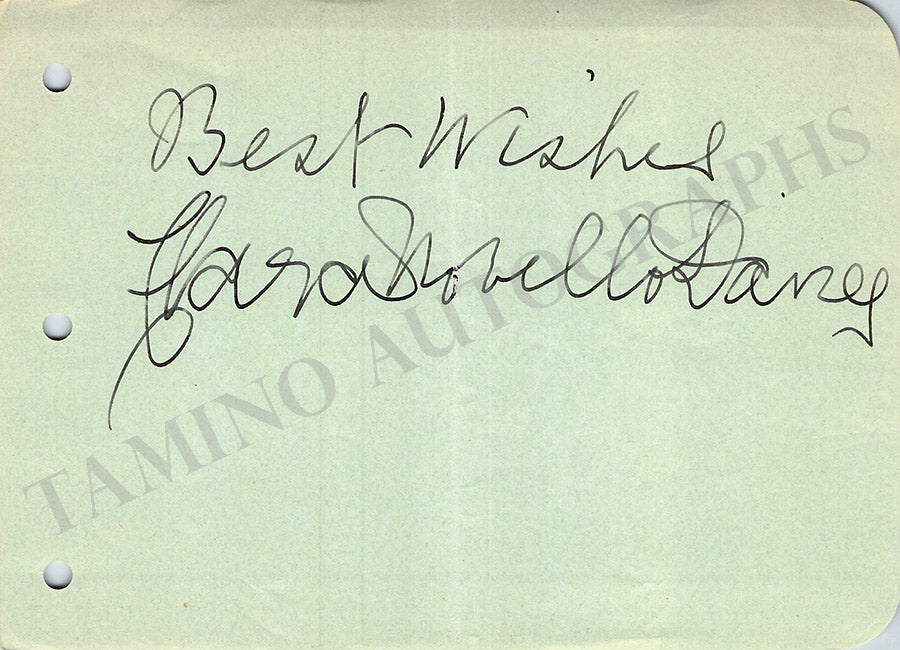 Best Wishes
Clara Novello Davies
TAMINO AUTOGRAPHS